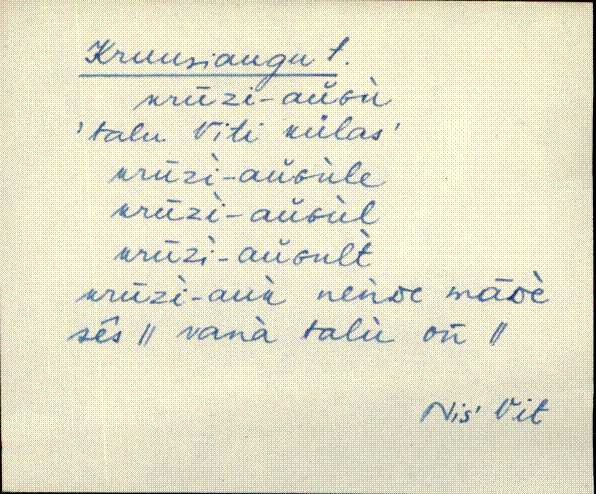 Kruusiaugu t.
krūzi-aŭɢù
'talu Viti külas'
krūzì-aŭɢùle
krūzì-aŭɢùl
krūzì-aŭɢult̀
krūzì-auk̀ neǹᴅe māᴅè
sês // vanà talù oñ //
Nis' Vit